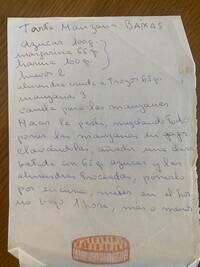 Tarta Manzana BAMAS
Azucar 100 g.
margarina 65 g.
harina 100 g.
huevos 2
almendra cruda a Trozos 65 g.
manzana 3
canela para las manzanas
Hacer la pasta, mezclando todo
poner las manzanas en gajos
clavándolas, añadir una clara
batida con 65 g. azucar y las
almendras troceadas, ponerlo
por encima, meter en el hor
no 1 hora, más o menos